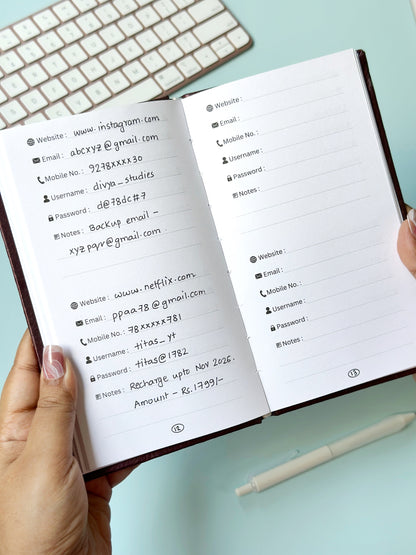 Website : www.instagram.com
Email : abcxyz@gmail.com
Mobile No. : 9278xxxx30
Username : divya_studies
Password : d@78dc#7
Notes : Backup email -
xyzpqr@gmail.com
Website : www.netflix.com
Email : ppaa78@gmail.com
Mobile No. : 78xxxxx781
Username : titas_yt
Password : titas@1782
Notes : Recharge upto Nov 2026.
Amount - Rs.1799/-
12
Website :
Email :
Mobile No. :
Username :
Password :
Notes :
Website :
Email :
Mobile No. :
Username :
Password :
Notes :
13